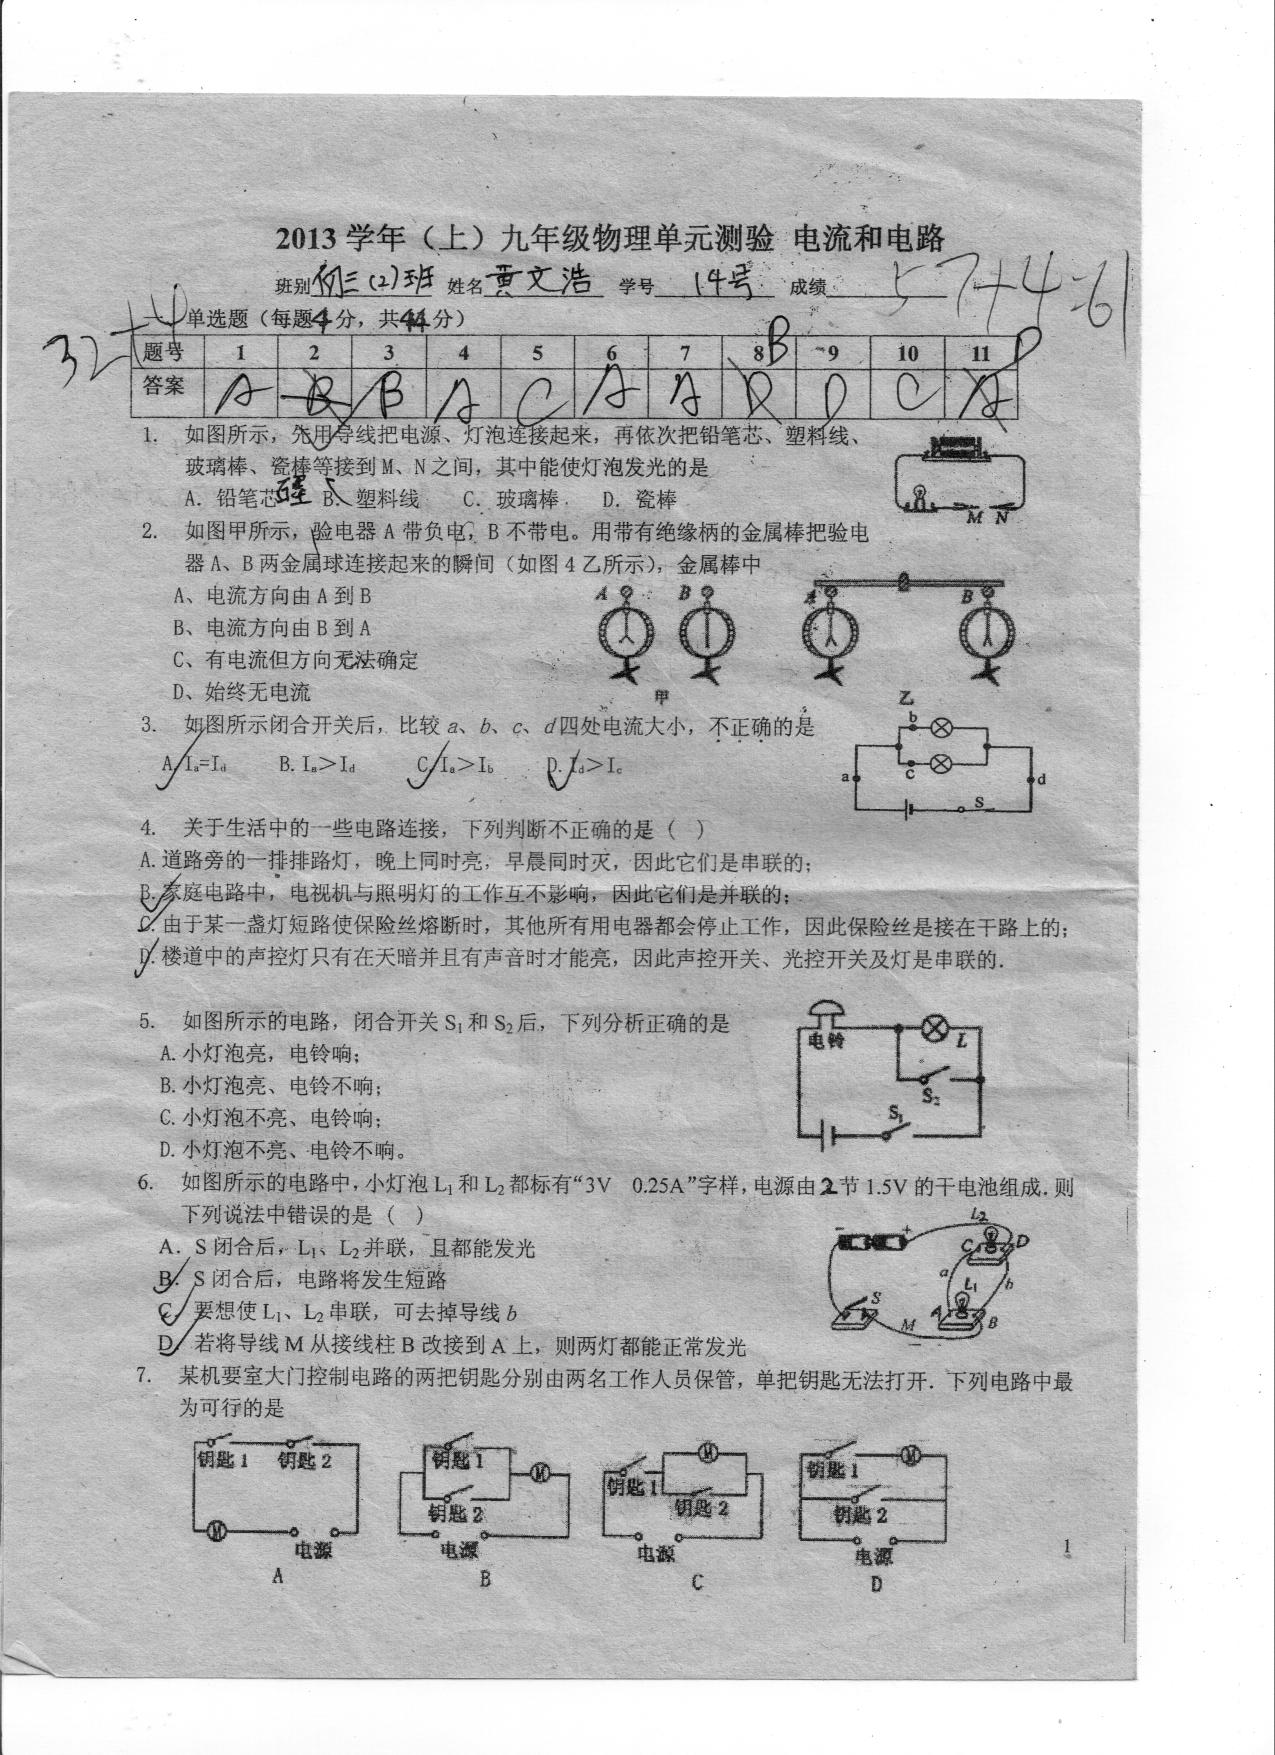 2013 学年（上）九年级物理单元测验 电流和电路
班别 初三(2)班 姓名 黄文浩 学号 14号 成绩 57+4=61
一、单选题（每题4分，共44分） 32+4
题号 1 2 3 4 5 6 7 8 B 9 10 11 D
答案 A B B A C A A D D C A
1. 如图所示，先用导线把电源、灯泡连接起来，再依次把铅笔芯、塑料线、
玻璃棒、瓷棒等接到 M、N 之间，其中能使灯泡发光的是
M N
A．铅笔芯 B．塑料线 C．玻璃棒 D．瓷棒
2. 如图甲所示，验电器 A 带负电，B 不带电。用带有绝缘柄的金属棒把验电
器 A、B 两金属球连接起来的瞬间（如图 4 乙所示），金属棒中
A、电流方向由 A 到 B
B、电流方向由 B 到 A
C、有电流但方向无法确定
D、始终无电流
A B A B
甲 乙
3. 如图所示闭合开关后，比较 a、b、c、d四处电流大小，不正确的是
A. Ia=Id B. Ia＞Id C. Ia＞Ib D. Id＞Ic
b
a c d
S
4. 关于生活中的一些电路连接，下列判断不正确的是（ ）
A. 道路旁的一排排路灯，晚上同时亮，早晨同时灭，因此它们是串联的；
B. 家庭电路中，电视机与照明灯的工作互不影响，因此它们是并联的；
C. 由于某一盏灯短路使保险丝熔断时，其他所有用电器都会停止工作，因此保险丝是接在干路上的；
D. 楼道中的声控灯只有在天暗并且有声音时才能亮，因此声控开关、光控开关及灯是串联的．
5. 如图所示的电路，闭合开关 S1 和 S2 后，下列分析正确的是
A. 小灯泡亮，电铃响；
B. 小灯泡亮、电铃不响；
C. 小灯泡不亮、电铃响；
D. 小灯泡不亮、电铃不响。
电铃 L
S2
S1
6. 如图所示的电路中，小灯泡 L1 和 L2 都标有“3V 0.25A”字样，电源由 2 节 1.5V 的干电池组成．则
下列说法中错误的是（ ）
A．S 闭合后，L1、L2 并联，且都能发光
B．S 闭合后，电路将发生短路
C．要想使 L1、L2 串联，可去掉导线 b
D．若将导线 M 从接线柱 B 改接到 A 上，则两灯都能正常发光
- + L2
C D
a L1 b
S
M A B
7. 某机要室大门控制电路的两把钥匙分别由两名工作人员保管，单把钥匙无法打开．下列电路中最
为可行的是
钥匙 1 钥匙 2 M 电源
钥匙 1 钥匙 2 M 电源
钥匙 1 M 钥匙 2 电源
钥匙 1 M 钥匙 2 电源
A B C D
1